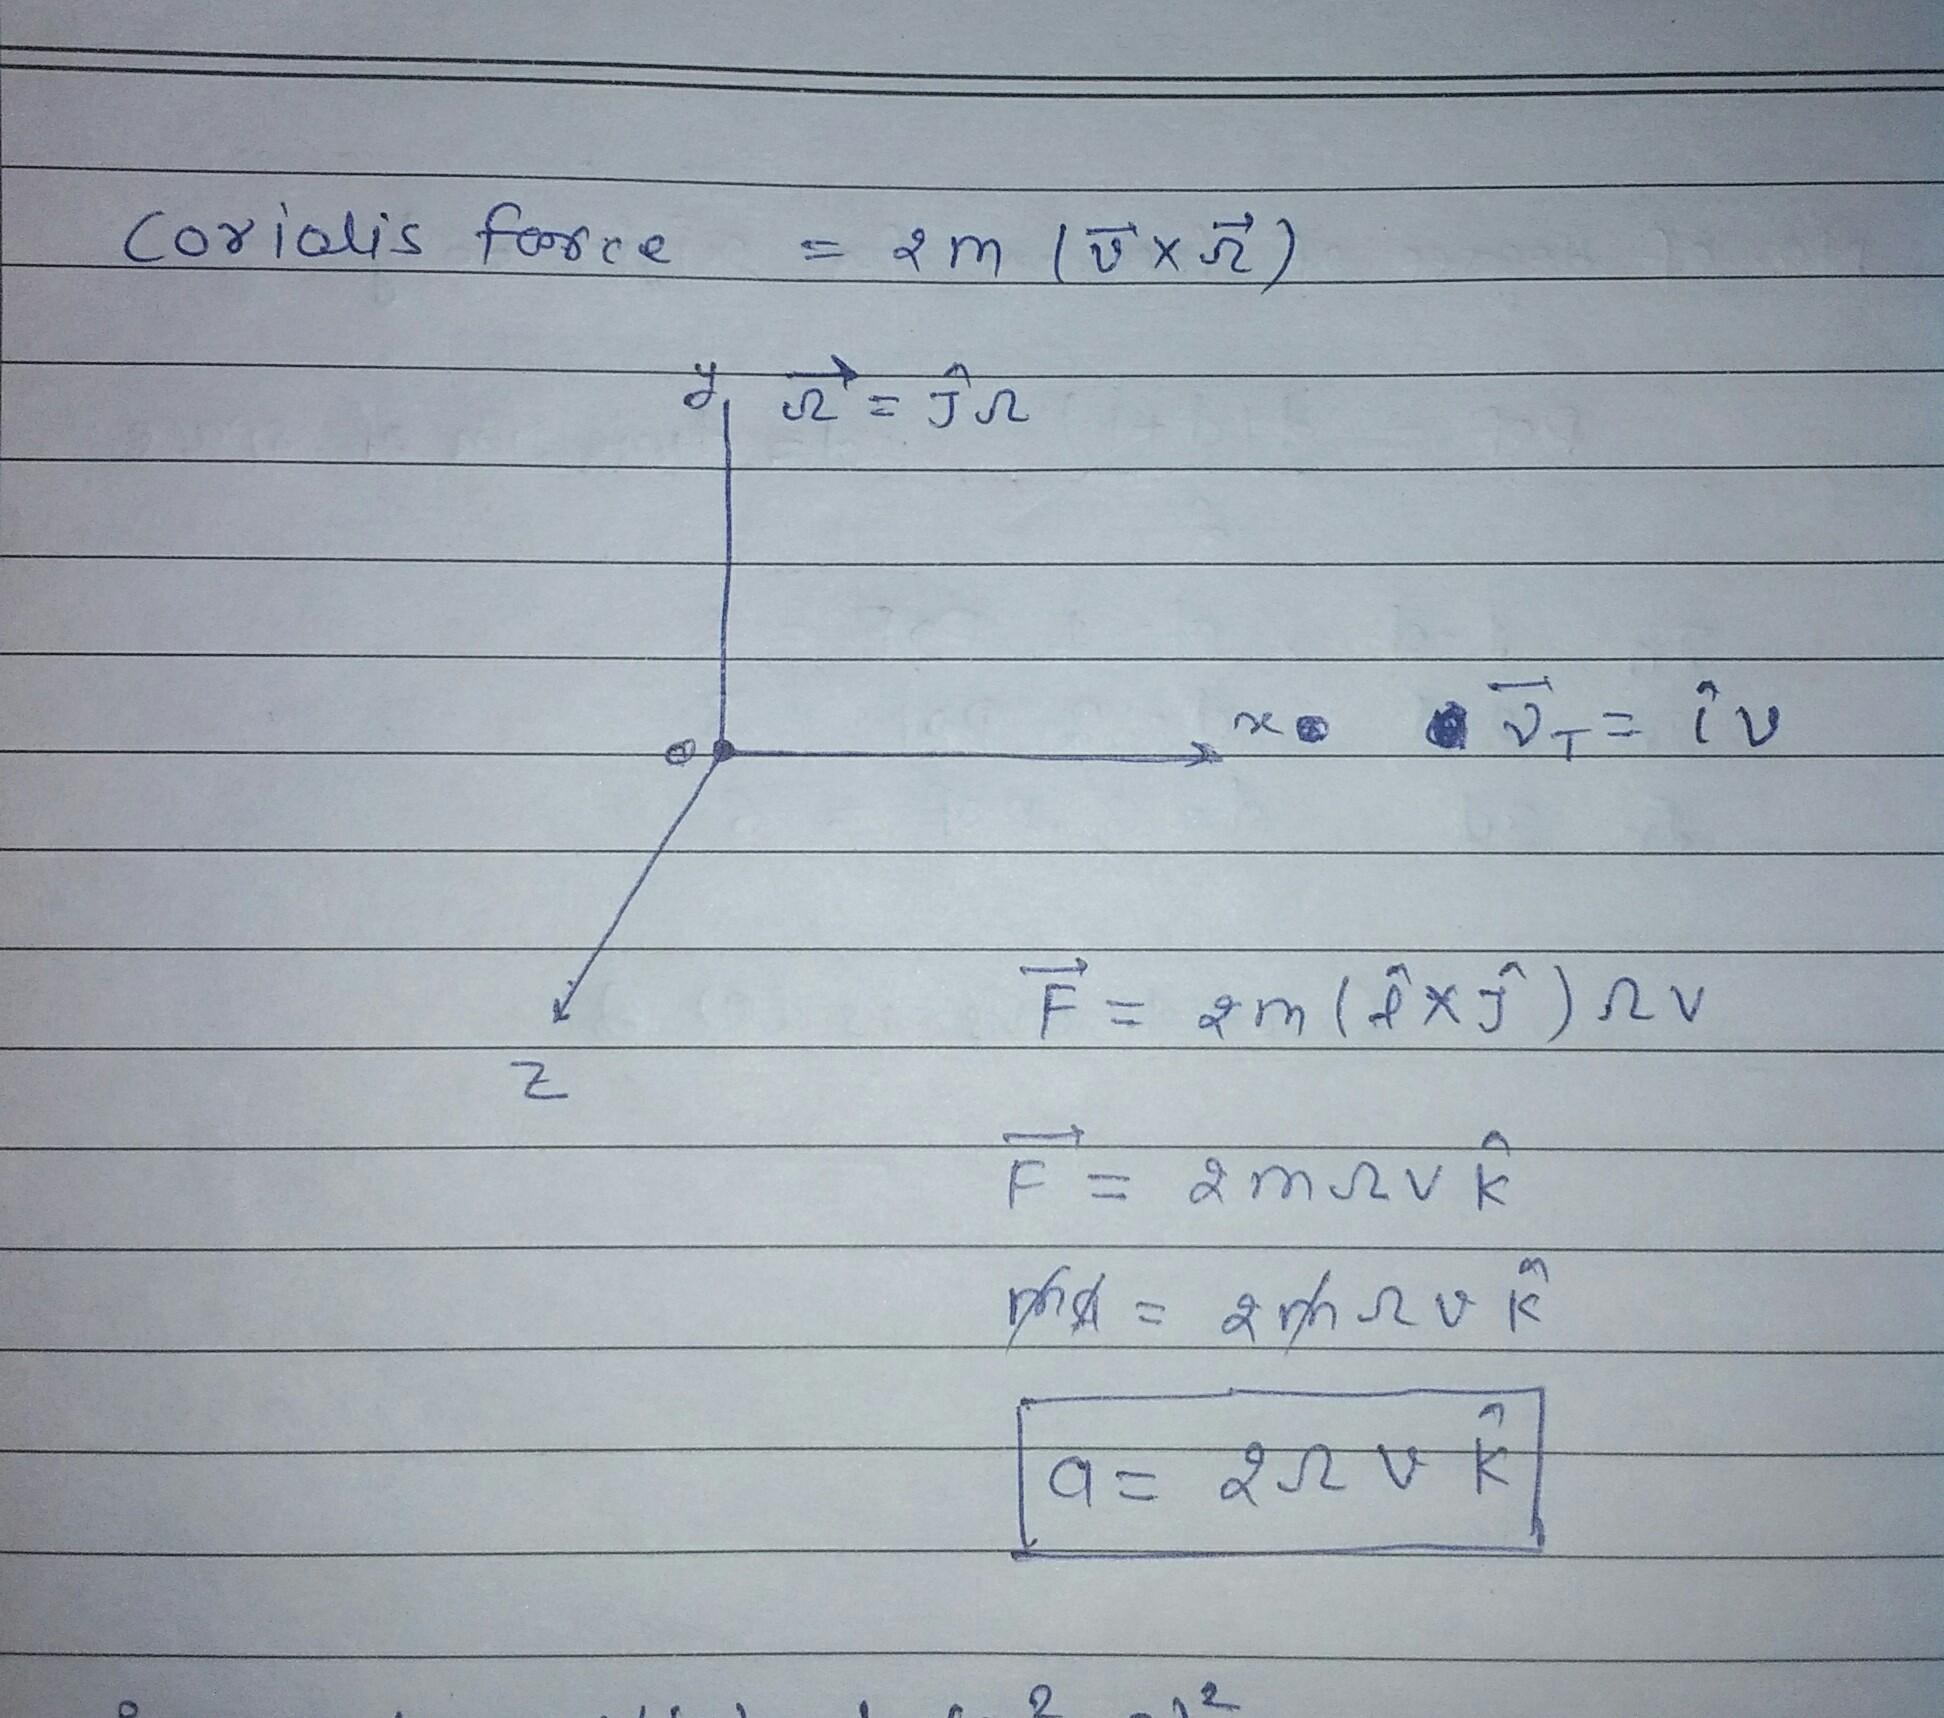 Coriolis force = 2m (v⃗ × Ω⃗)
y Ω⃗ = ĵΩ
x v⃗_T = îv
O
F⃗ = 2m(î × ĵ)Ωv
z
F⃗ = 2mΩv k̂
ma = 2mΩv k̂
a = 2Ωv k̂